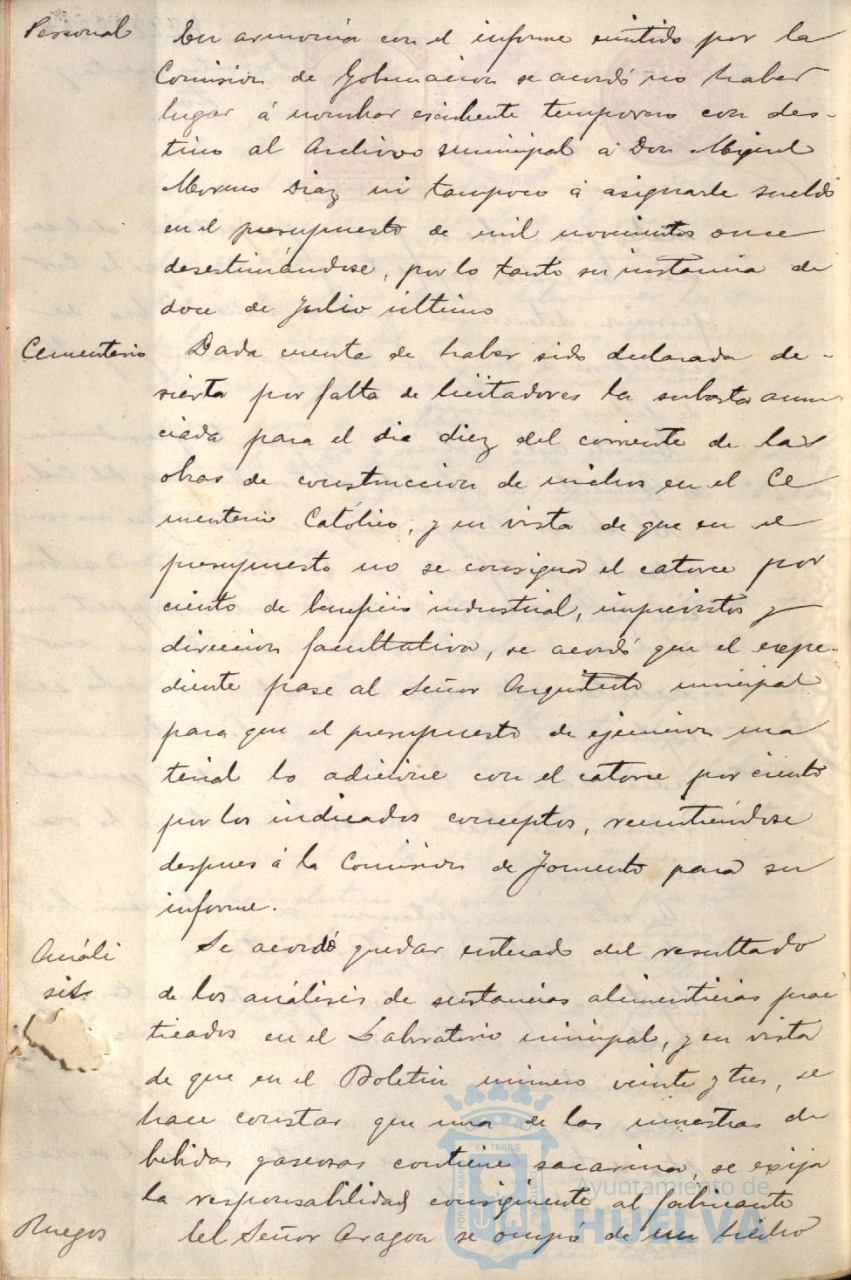 Personal
En armonia con el informe emitido por la
Comision de Gobernacion se acordó no haber
lugar á nombrar escribiente temporero con des-
tino al Archivo municipal á Don Miguel
Moreno Diaz ni tampoco á asignarle sueldo
en el presupuesto de mil novecientos once
desestimándose, por lo tanto su instancia de
doce de Julio último
Cementerio
Dada cuenta de haber sido declarada de-
sierta por falta de licitadores la subasta anun
ciada para el dia diez del corriente de las
obras de construccion de nichos en el Ce
menterio Católico, y en vista de que en el
presupuesto no se consigna el catorce por
ciento de beneficio industrial, imprevistos y
direccion facultativa, se acordó que el expe-
diente pase al Señor Arquitecto municipal
para que el presupuesto de ejecucion ma
terial lo adicione con el catorce por ciento
por los indicados conceptos, remitiéndose
despues á la Comision de Fomento para su
informe.
Análi
sis
Se acordó quedar enterado del resultado
de los análisis de sustancias alimenticias prac
ticados en el Laboratorio municipal, y en vista
de que en el Boletin número veinte y tres, se
hace constar que una de las muestras de
bebidas gaseosas contiene sacarina, se exija
la responsabilidad consiguiente al fabricante
Ruegos
El Señor Aragon se ocupó de un hecho
Ayuntamiento de
HUELVA